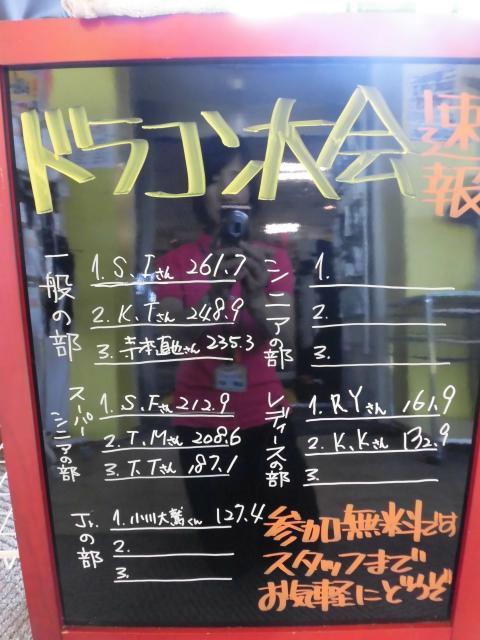 ドラコン大会
速報
一般の部
1. S.I.さん 261.7
2. K.T.さん 248.9
3. 寺本直也さん 235.3
シニアの部
1.
2.
3.
スーパーシニアの部
1. S.Fさん 212.9
2. T.Mさん 208.6
3. T.Tさん 187.1
レディースの部
1. R.Yさん 161.9
2. K.Kさん 132.9
3.
Jr.の部
1. 小川大篤くん 127.4
2.
3.
参加無料です
スタッフまで
お気軽にどうぞ